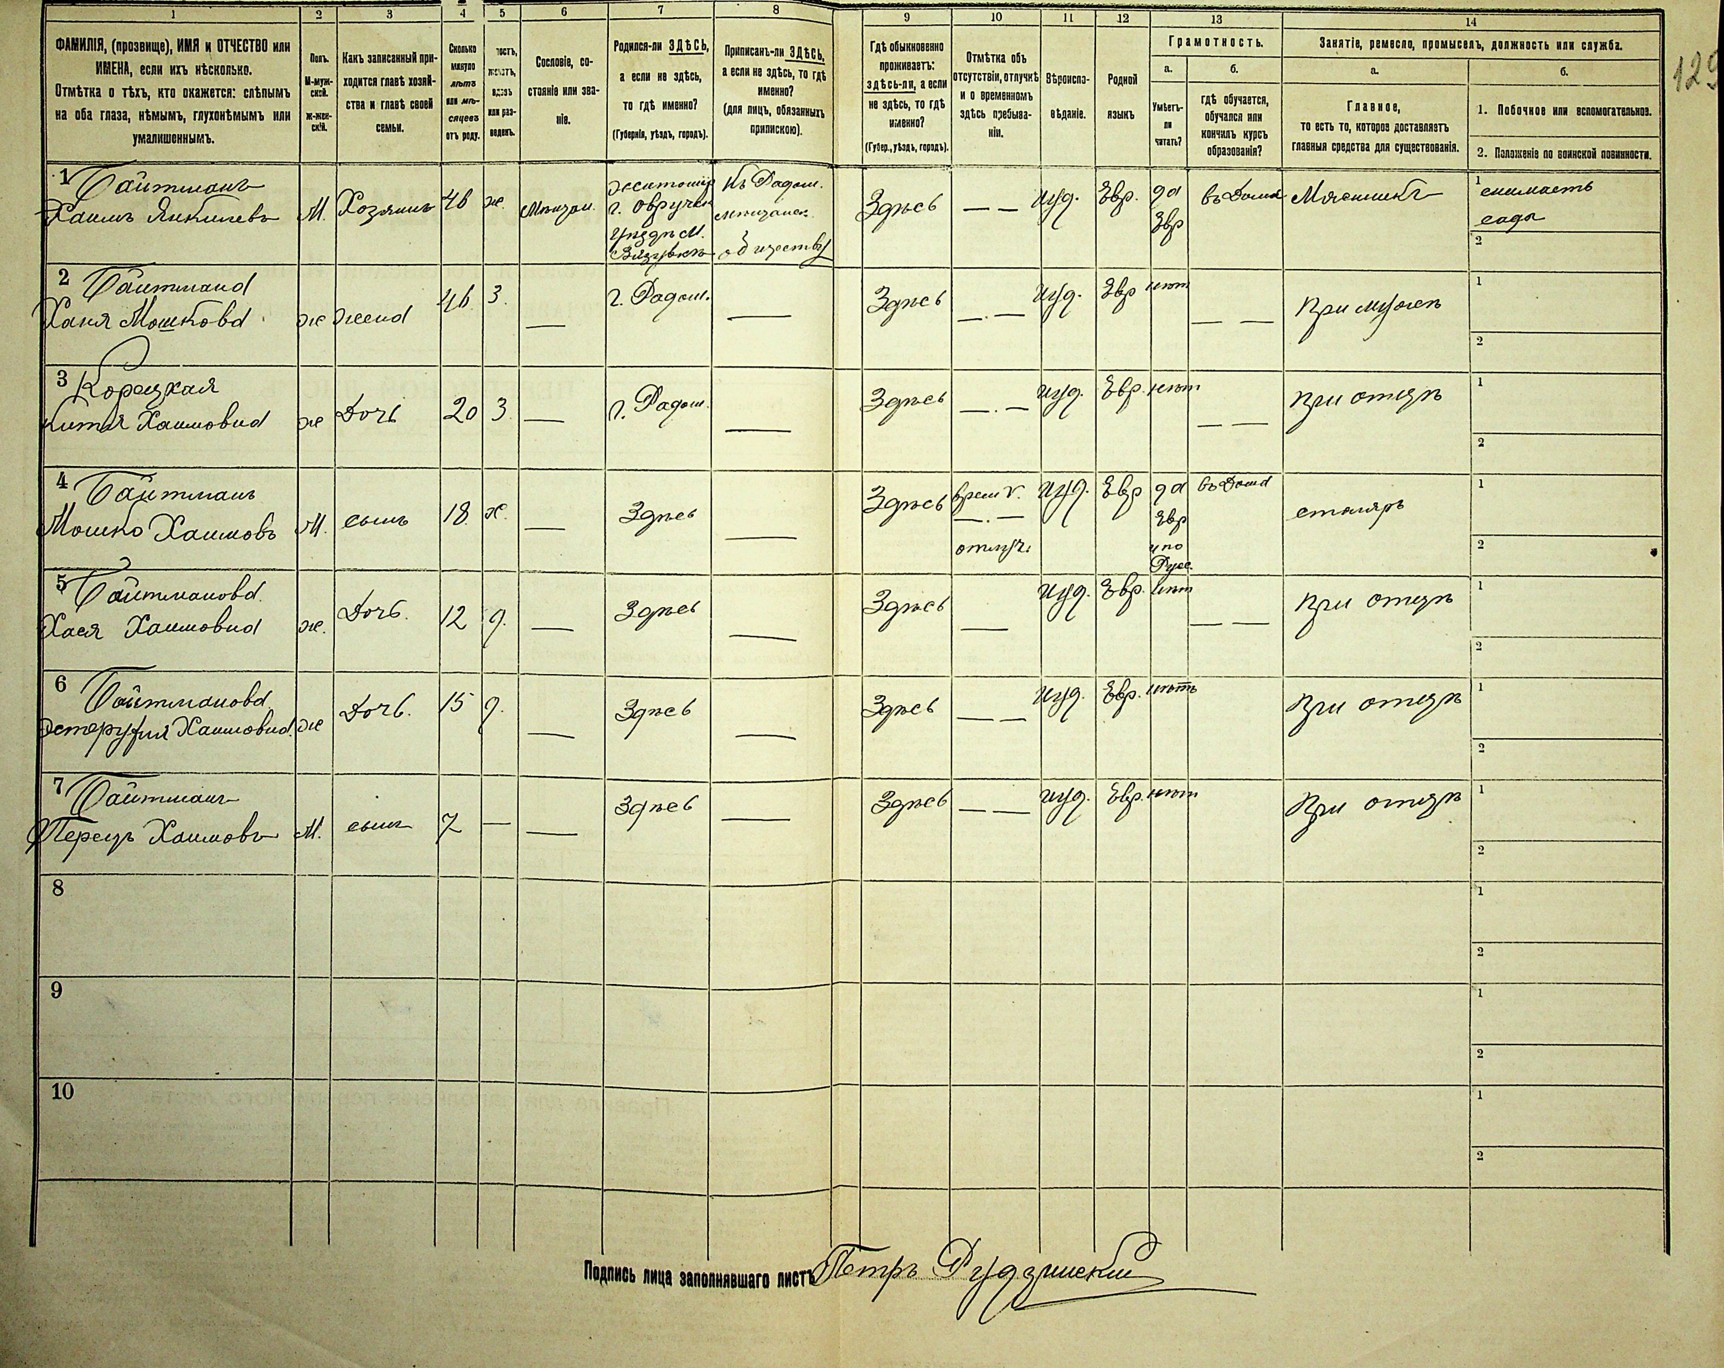 1 2 3 4 5 6 7 8 9 10 11 12 13 14
ФАМИЛІЯ, (прозвище), ИМЯ и ОТЧЕСТВО или
ИМЕНА, если ихъ нѣсколько.
Отмѣтка о тѣхъ, кто окажется: слѣпымъ
на оба глаза, нѣмымъ, глухонѣмымъ или
умалишеннымъ.
Полъ.
М-муж-
ской.
ж-жен-
скій.
Какъ записанный при-
ходится главѣ хозяй-
ства и главѣ своей
семьи.
Сколько
минуло
лѣтъ
или мѣ-
сяцевъ
отъ роду.
вдовъ
или раз-
веденъ.
Сословіе, со-
стояніе или зва-
ніе.
Родился-ли ЗДѢСЬ,
а если не здѣсь,
то гдѣ именно?
(Губернія, уѣздъ, городъ).
Приписанъ-ли ЗДѢСЬ,
а если не здѣсь, то гдѣ
именно?
(для лицъ, обязанныхъ
припискою).
Гдѣ обыкновенно
проживаетъ:
здѣсь-ли, а если
не здѣсь, то гдѣ
именно?
(Губер., уѣздъ, городъ).
Отмѣтка объ
отсутствіи, отлучкѣ
и о временномъ
здѣсь пребыва-
ніи.
Вѣроиспо-
вѣданіе.
Родной
языкъ
Грамотность.
а.
Умѣетъ-
ли
читать?
б.
гдѣ обучается,
обучался или
кончилъ курсъ
образованія?
Занятіе, ремесло, промыселъ, должность или служба.
а.
Главное,
то есть то, которое доставляетъ
главныя средства для существованія.
б.
1. Побочное или вспомогательное.
2. Положеніе по воинской повинности.
129
1 Байтманъ
Хаимъ Янкилевъ М. Хозяинъ 46 ж. Мѣщан.
г. Овруч.
Къ Радом.
обществу
Здѣсь — — Иуд. Евр. да
Евр
въ Дома
1
снимаетъ
сады
2
2
Ханя Мошкова ж жена 46 З. — г. Радом. — Здѣсь — . — Иуд. Евр нѣт — — При мужѣ
1
2
3 Корецкая
Хаимовна ж Дочь 20 З. — г. Радом. — Здѣсь — . — Иуд. Евр. нѣт — — При отцѣ
1
2
4 Байтманъ
Мошко Хаимовъ М. сынъ 18 х. — Здѣсь — Здѣсь
— . —
отлуч.
Иуд. Евр да
Евр
и по
Русс.
въ Дома
столяръ
1
2
5 Байтманова
Хася Хаимовна ж. Дочь. 12 д. — Здѣсь — Здѣсь — Иуд. Евр. нѣт — — При отцѣ
1
2
6 Байтманова
Хаимовна ж Дочь. 15 д. — Здѣсь — Здѣсь — — Иуд. Евр. нѣтъ При отцѣ
1
2
7 Байтманъ
Перецъ Хаимовъ М. сынъ 7 — — Здѣсь — Здѣсь — — Иуд. Евр. нѣт При отцѣ
1
2
8
1
2
9
1
2
10
1
2
Подпись лица заполнявшаго листъ Петръ Рудзинскій